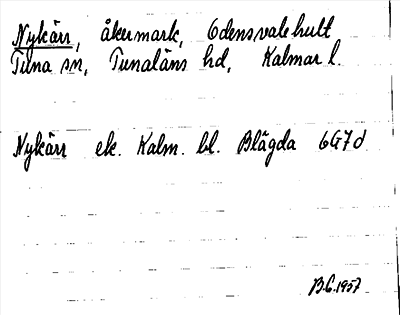 Nykärr, åkermark, Odensvalehult
Tuna sn, Tunaläns hd, Kalmar l.
Nykärr ek. Kalm. bl. Blägda 6G7d
B.E. 1957